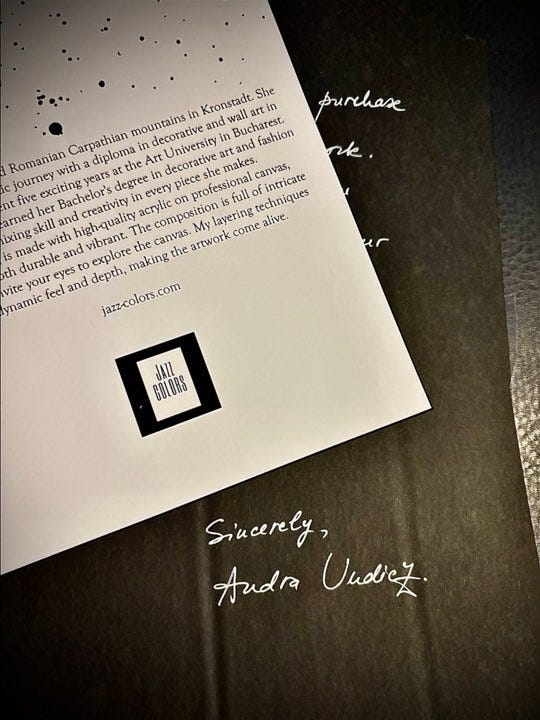 d Romanian Carpathian mountains in Kronstadt. She
ic journey with a diploma in decorative and wall art in
nt five exciting years at the Art University in Bucharest.
arned her Bachelor's degree in decorative art and fashion
ixing skill and creativity in every piece she makes.
is made with high-quality acrylic on professional canvas,
oth durable and vibrant. The composition is full of intricate
nvite your eyes to explore the canvas. My layering techniques
dynamic feel and depth, making the artwork come alive.
jazz-colors.com
JAZZ
COLORS
purchase
ork.
ur
Sincerely,
Andra Undicz.